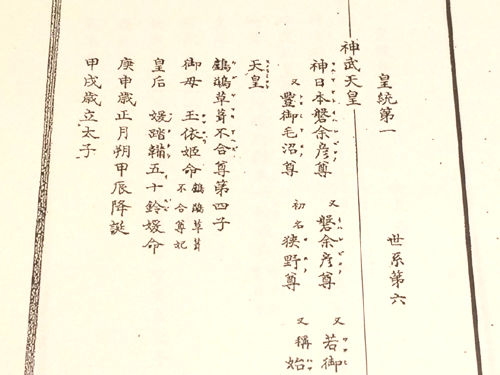 皇統第一 世系第六
神武天皇
神日本磐余彦尊 又 磐余彦尊 又 若御
又 豐御毛沼尊 初名 狹野尊 又稱 始
天皇
鸕鶿草葺不合尊第四子
御母 玉依姫命 鸕鶿草葺不合尊妃
皇后 媛蹈鞴五十鈴媛命
庚申歳正月朔甲辰降誕
甲戌歳立太子